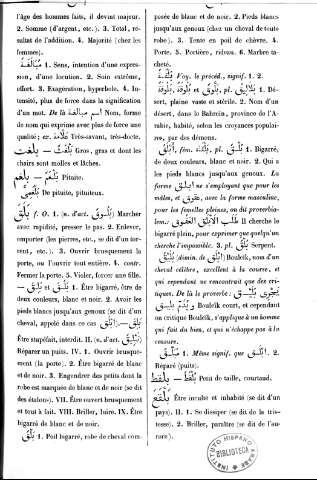 l'âge des hommes faits, il devient majeur.
2. Somme (d'argent, etc.). 3. Total, ré-
sultat de l'addition. 4. Majorité (chez les
femmes).
مُبَالَغَةٌ 1. Sens, intention d'une expres-
sion, d'une locution. 2. Soin extrême,
effort. 3. Exagération, hyperbole. 4. In-
tensité, plus de force dans la signification
d'un mot. De là اسم مبالغة Nom, forme
de nom qui exprime avec plus de force une
qualité; ex. عَلَّامَةٌ Très-savant, très-docte.
Gros, gras et dont les
chairs sont molles et lâches.
بَلْغَمٌ Pituite.
بَلْغَمِىٌّ De pituite, pituiteux.
بَلَقَ f. O. 1. (n. d'act. بُلُوقٌ) Marcher
avec rapidité, presser le pas. 2. Enlever,
emporter (les pierres, etc., se dit d'un tor-
rent, etc.). 3. Ouvrir brusquement la
porte, ou l'ouvrir tout entière. 4. contr.
Fermer la porte. 5. Violer, forcer une fille.
— بَلِقَ 1. Être bigarré, être de
deux couleurs, blanc et noir. 2. Avoir les
pieds blancs jusqu'aux genoux (se dit d'un
cheval, appelé dans ce cas أَبْلَقُ). —
Être stupéfait, interdit. II. (n. d'act. تَبْلِيقٌ)
Réparer un puits. IV. 1. Ouvrir brusque-
ment (la porte). 2. Être bigarré de blanc
et de noir. 3. Engendrer des petits dont la
robe est marquée de blanc et de noir (se dit
des étalons). VII. Être ouvert brusquement
et tout à fait. VIII. Briller, luire. IX. Être
bigarré de blanc et de noir.
بَلَقٌ 1. Poil bigarré, robe de cheval com-
posée de blanc et de noir. 2. Pieds blancs
jusqu'aux genoux (chez un cheval de toute
robe). 3. Tente en poil de chèvre. 4.
Porte. 5. Portière, rideau. 6. Marbre ta-
cheté.
بُلْقَةٌ Voy. le précéd., signif. 1. 2.
بَلُّوقٌ et بَلُّوقَةٌ, pl. بَلَالِيقُ 1. Dé-
sert, plaine vaste et stérile. 2. Nom d'un
désert, dans le Bahreïn, province de l'A-
rabie, habité, selon les croyances populai-
res, par des démons.
أَبْلَقُ, fém. بَلْقَاءُ, pl. بُلْقٌ 1. Bigarré,
de deux couleurs, blanc et noir. 2. Qui a
les pieds blancs jusqu'aux genoux. Le
mot ابلق ne s'employant que pour les
mâles, et عقوق, avec la forme masculine,
pour les femelles pleines, on dit proverbia-
lem.: طلب الابلق العقوق Il cherche le
bigarré plein, pour exprimer que quelqu'un
cherche l'impossible. 3. pl. Serpent.
بُلَيْقٌ (dimin. de أَبْلَقُ) Bouleïk, nom d'un
cheval célèbre, excellent à la course, et
qui cependant ne rencontrait que des cri-
tiques. De là le proverbe:
يجرى بليق ويذم Bouleïk court, et cependant
on critique Bouleïk, s'applique à un homme
qui fait du bien, et qui n'échappe pas à la
censure.
1. Même signif. que أَبْلَقُ. 2.
Réparé (puits).
Petit de taille, courtaud.
بَلْقَعَ Être inculte et inhabité (se dit d'un
pays). II. 1. Se dissiper (se dit de la tris-
tesse). 2. Briller, paraître (se dit de l'au-
rore).
INSTITUTO HISPANO ARABE
BIBLIOTECA